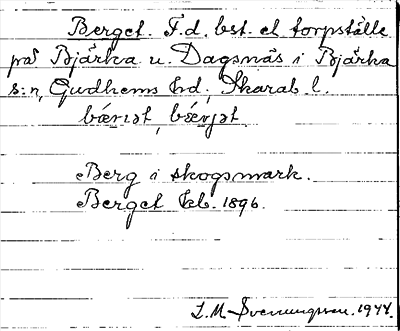 Berget. F.d. bst. el torpställe
på Bjärka u. Dagsnäs i Bjärka
s:n, Gudhems hd, Skarab. l.
Berg i skogsmark.
Berget kb. 1896.
L. M. Svenungsson. 1944.